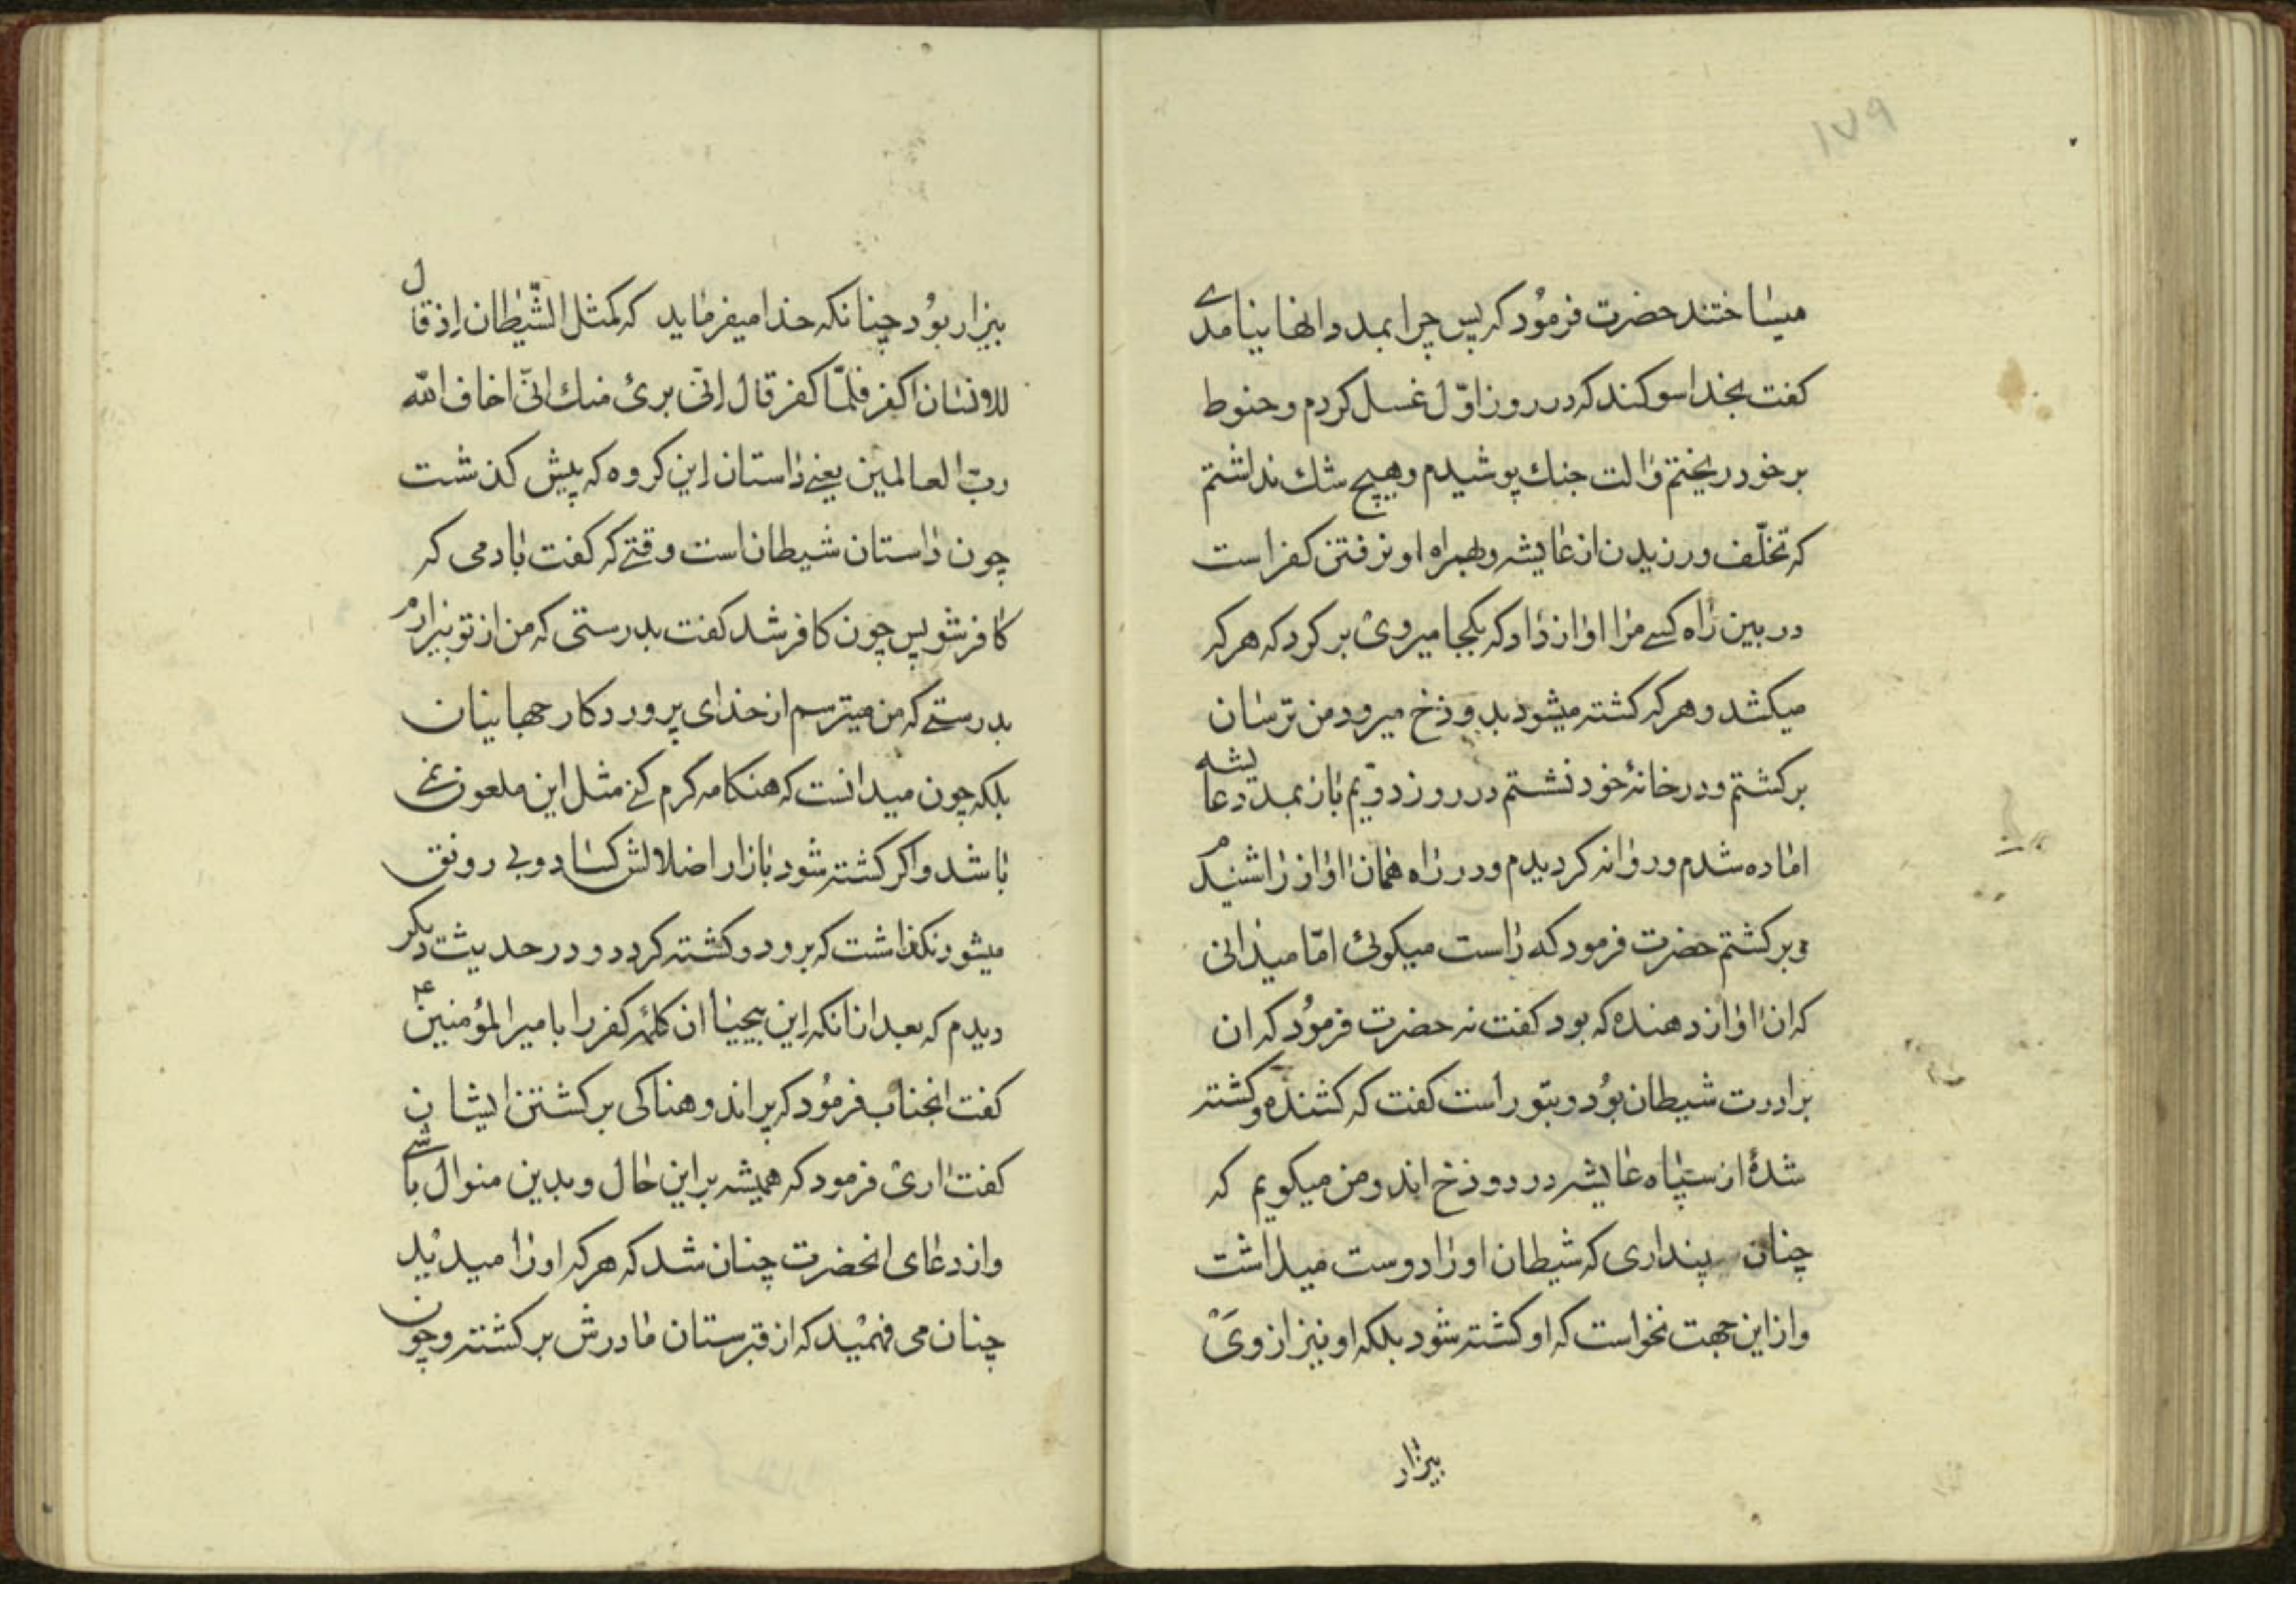 ۱۷۹
میساختند حضرت فرمود که پس چرا بمدد انها نیامدی
کفت بخدا سوکند که در روز اوّل غسل کردم و حنوط
بر خود ریختم و الت جنك پوشیدم و هیچ شك نداشتم
که تخلّف ورزیدن از عایشه و بهمراه او نرفتن کفر است
در بین راه کسے مرا اواز داد که بکجا میروی بر کرد که هر که
میکشد و هر که کشته میشود بدوزخ میرود من ترسان
بر کشتم و در خانهٔ خود نشستم در روز دویّم باز بمدد عایشه
اماده شدم و روانه کردیدم و در راه همان اواز را شنیدم
و بر کشتم حضرت فرمود که راست میکوئی امّا میدانی
که ان اواز دهنده که بود کفت نه حضرت فرمود که ان
برادرت شیطان بود و بتو راست کفت که کشنده و کشته
شدهٔ از سپاه عایشه در دوزخ اند و من میکویم که
چنان پنداری که شیطان او را دوست میداشت
و از این جهت نخواست که او کشته شود بلکه او نیز از وی
بیزار
بیزار بود چنانکه خدا میفرماید که کمثل الشّیطان اِذ قال
للانسان اکفر فلمّا کفر قال اِنّی برئ منك انّی اخاف اللّه
ربّ العالمین یعنے داستان اِین کروه که پیش کذشت
چون داستان شیطان است وقتے که کفت بادمی که
کافر شو پس چون کافر شد کفت بدرستی که من از تو بیزارم
بدرستے که من میترسم از خدای پروردکار جهانیان
بلکه چون میدانست که هنکامه کرم کنے مثل این ملعونے
باشد و اکر کشته شود بازار اضلالش کساد و بی رونق
میشود نکذاشت که برود و کشته کردد و در حدیث دیکر
دیدم که بعد از انکه اِین بیحیا ان کلمهٔ کفر را با میر المؤمنین ع
کفت انجناب فرمود که پر اندوهناکی بر کشتن ایشان
کفت اری فرمود که همیشه بر این حال و بدین منوال باشے
و از دعای انحضرت چنان شد که هر که او را میدید
چنان می فهمید که از قبرستان مادرش بر کشته و چون